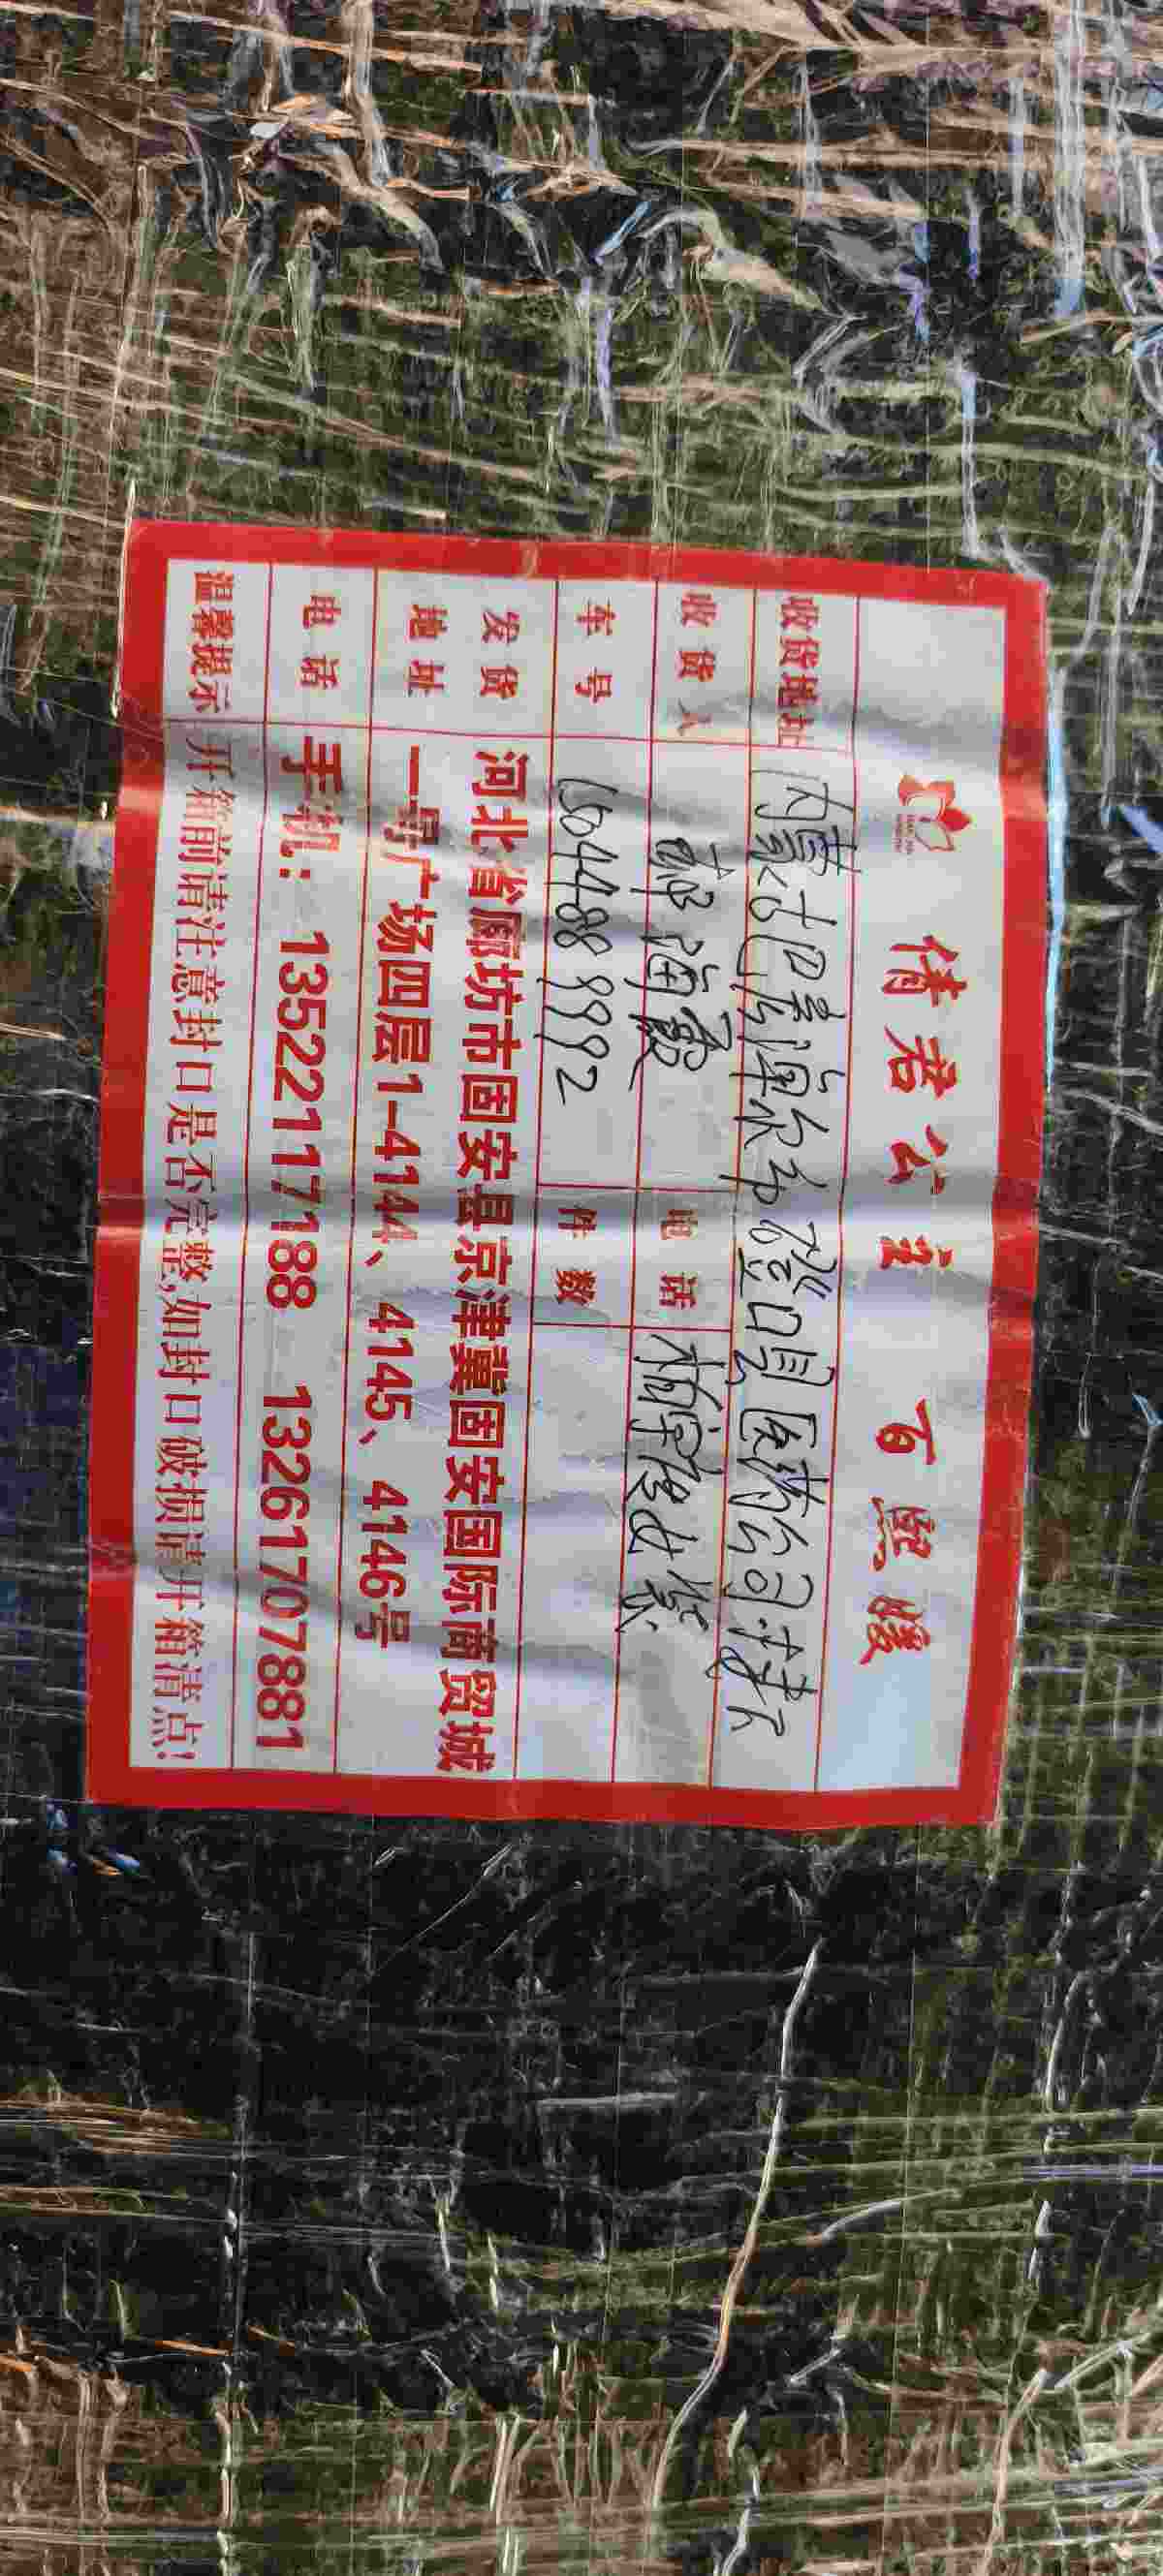 倩若公主 百熙暖
收货地址 内蒙古巴彦淖尔市磴口县医药公司楼下
收货人 郝海霞 电话 楠宇馒女装
车号 16644889992 件数
发货地址 河北省廊坊市固安县京津冀固安国际商贸城
一号广场四层1-4144、4145、4146号
电话 手机：13522117188 13261707881
温馨提示 开箱前请注意封口是否完整,如封口破损请开箱清点!